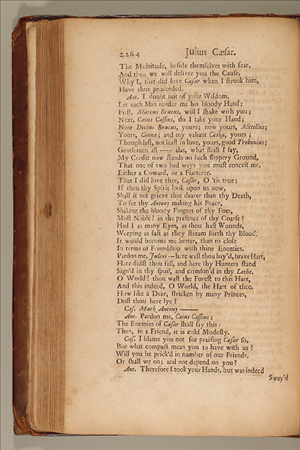 2264 Julius Cæsar.
The Multitude, beside themselves with fear,
And then we will deliver you the Cause,
Why I, that did love Cæsar when I strook him,
Have thus proceeded.
Ant. I doubt not of your Wisdom.
Let each Man render me his bloody Hand;
First, Marcus Brutus, will I shake with you;
Next, Caius Cassius, do I take your Hand;
Now Decius Brutus, yours; now yours, Metellus;
Yours, Cinna; and my valiant Caska, yours;
Though last, not least in love, yours, good Trebonius;
Gentlemen all —— alas, what shall I say,
My Credit now stands on such slippery Ground,
That one of two bad ways you must conceit me,
Either a Coward, or a Flatterer.
That I did love thee, Cæsar, O 'tis true;
If then thy Spirit look upon us now,
Shall it not grieve thee dearer than thy Death,
To see thy Antony making his Peace,
Shaking the bloody Fingers of thy Foes,
Most Noble! in the presence of thy Coarse?
Had I as many Eyes, as thou hast Wounds,
Weeping as fast as they stream forth thy Blood,
It would become me better, than to close
In terms of Friendship with thine Enemies.
Pardon me, Julius — here wast thou bay'd, brave Hart,
Here didst thou fall, and here thy Hunters stand
Sign'd in thy spoil, and crimson'd in thy Lethe.
O World! thou wast the Forest to this Hart,
And this indeed, O World, the Hart of thee.
How like a Deer, stricken by many Princes,
Dost thou here lye?
Cas. Mark Antony ——
Ant. Pardon me, Caius Cassius;
The Enemies of Cæsar shall say this:
Then, in a Friend, it is cold Modesty.
Cas. I blame you not for praising Cæsar so,
But what compact mean you to have with us?
Will you be prick'd in number of our Friends,
Or shall we on; and not depend on you?
Ant. Therefore I took your Hands, but was indeed
Sway'd